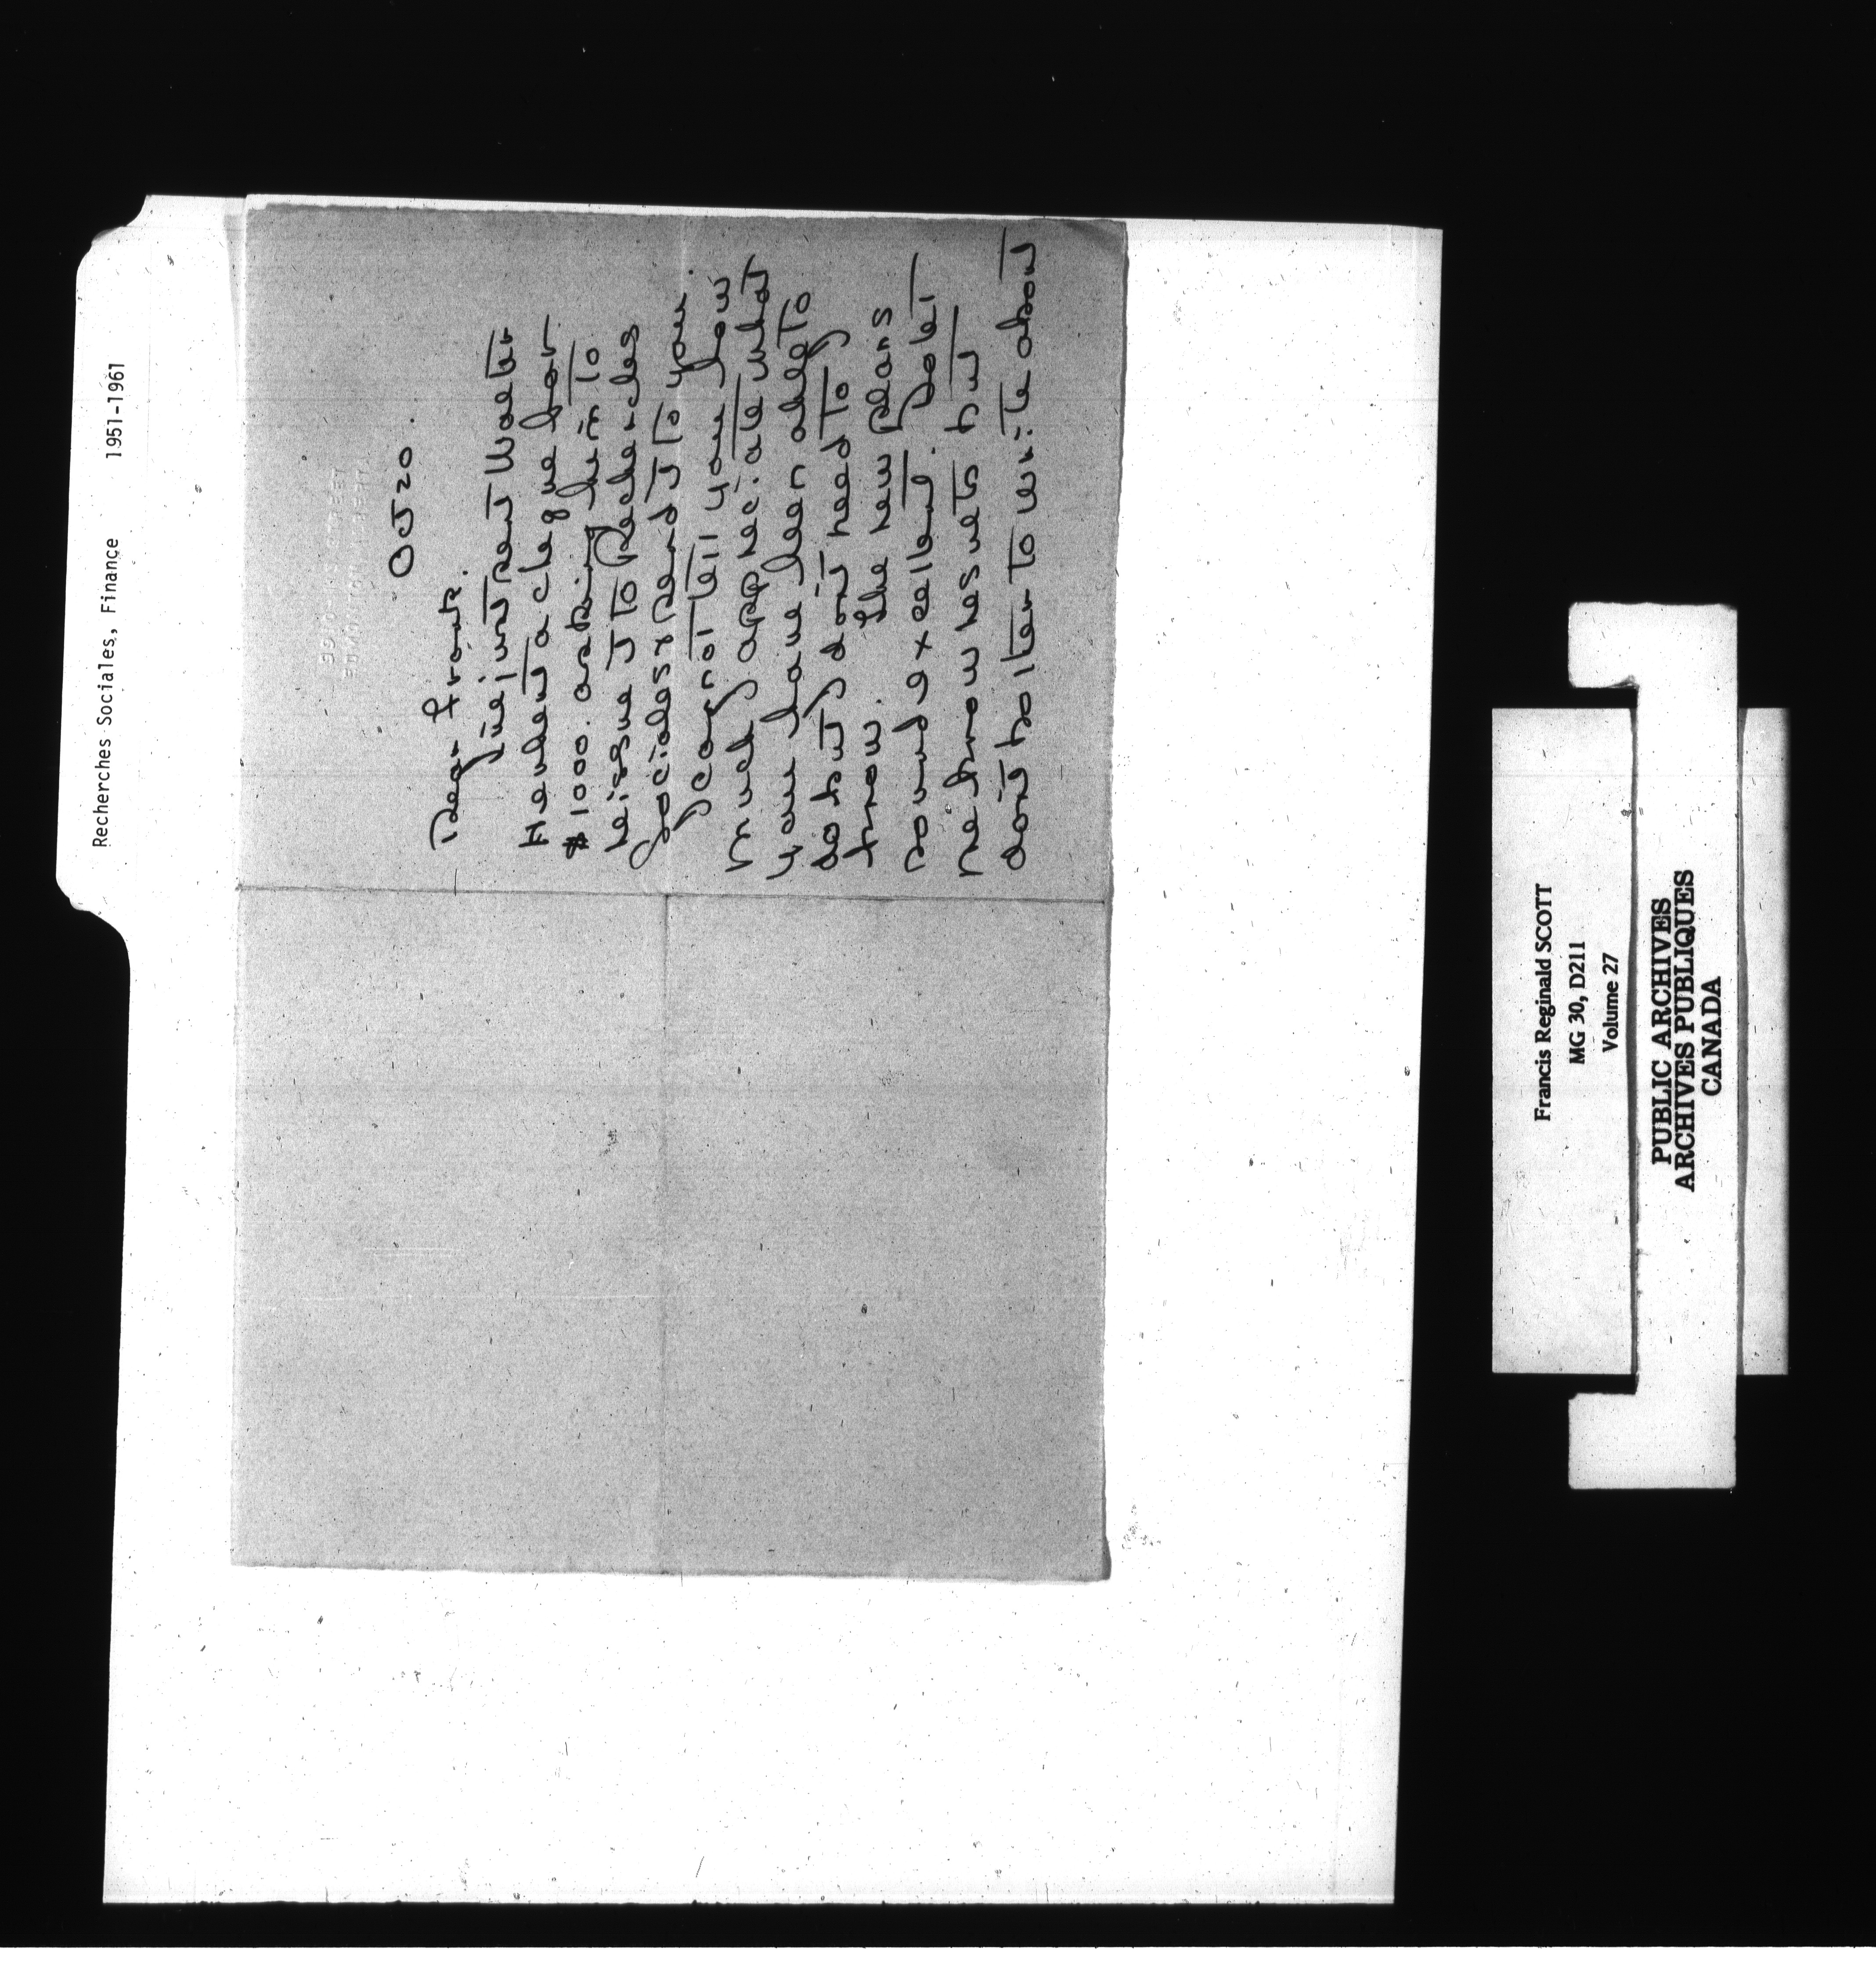 Recherches Sociales, Finance 1951-1961
Oct 20.
Dear Frank.
I've just sent Walter
Heuben a cheque for
$1000. asking him to
reissue it to Recherches
Sociales & send it to you.
I cannot tell you how
much I appreciate what
you have been able to
do but I don't need to I
know. The new plans
sound excellent. Do let
me know results but
don't bother to write about
Francis Reginald SCOTT
MG 30, D211
Volume 27
PUBLIC ARCHIVES
ARCHIVES PUBLIQUES
CANADA